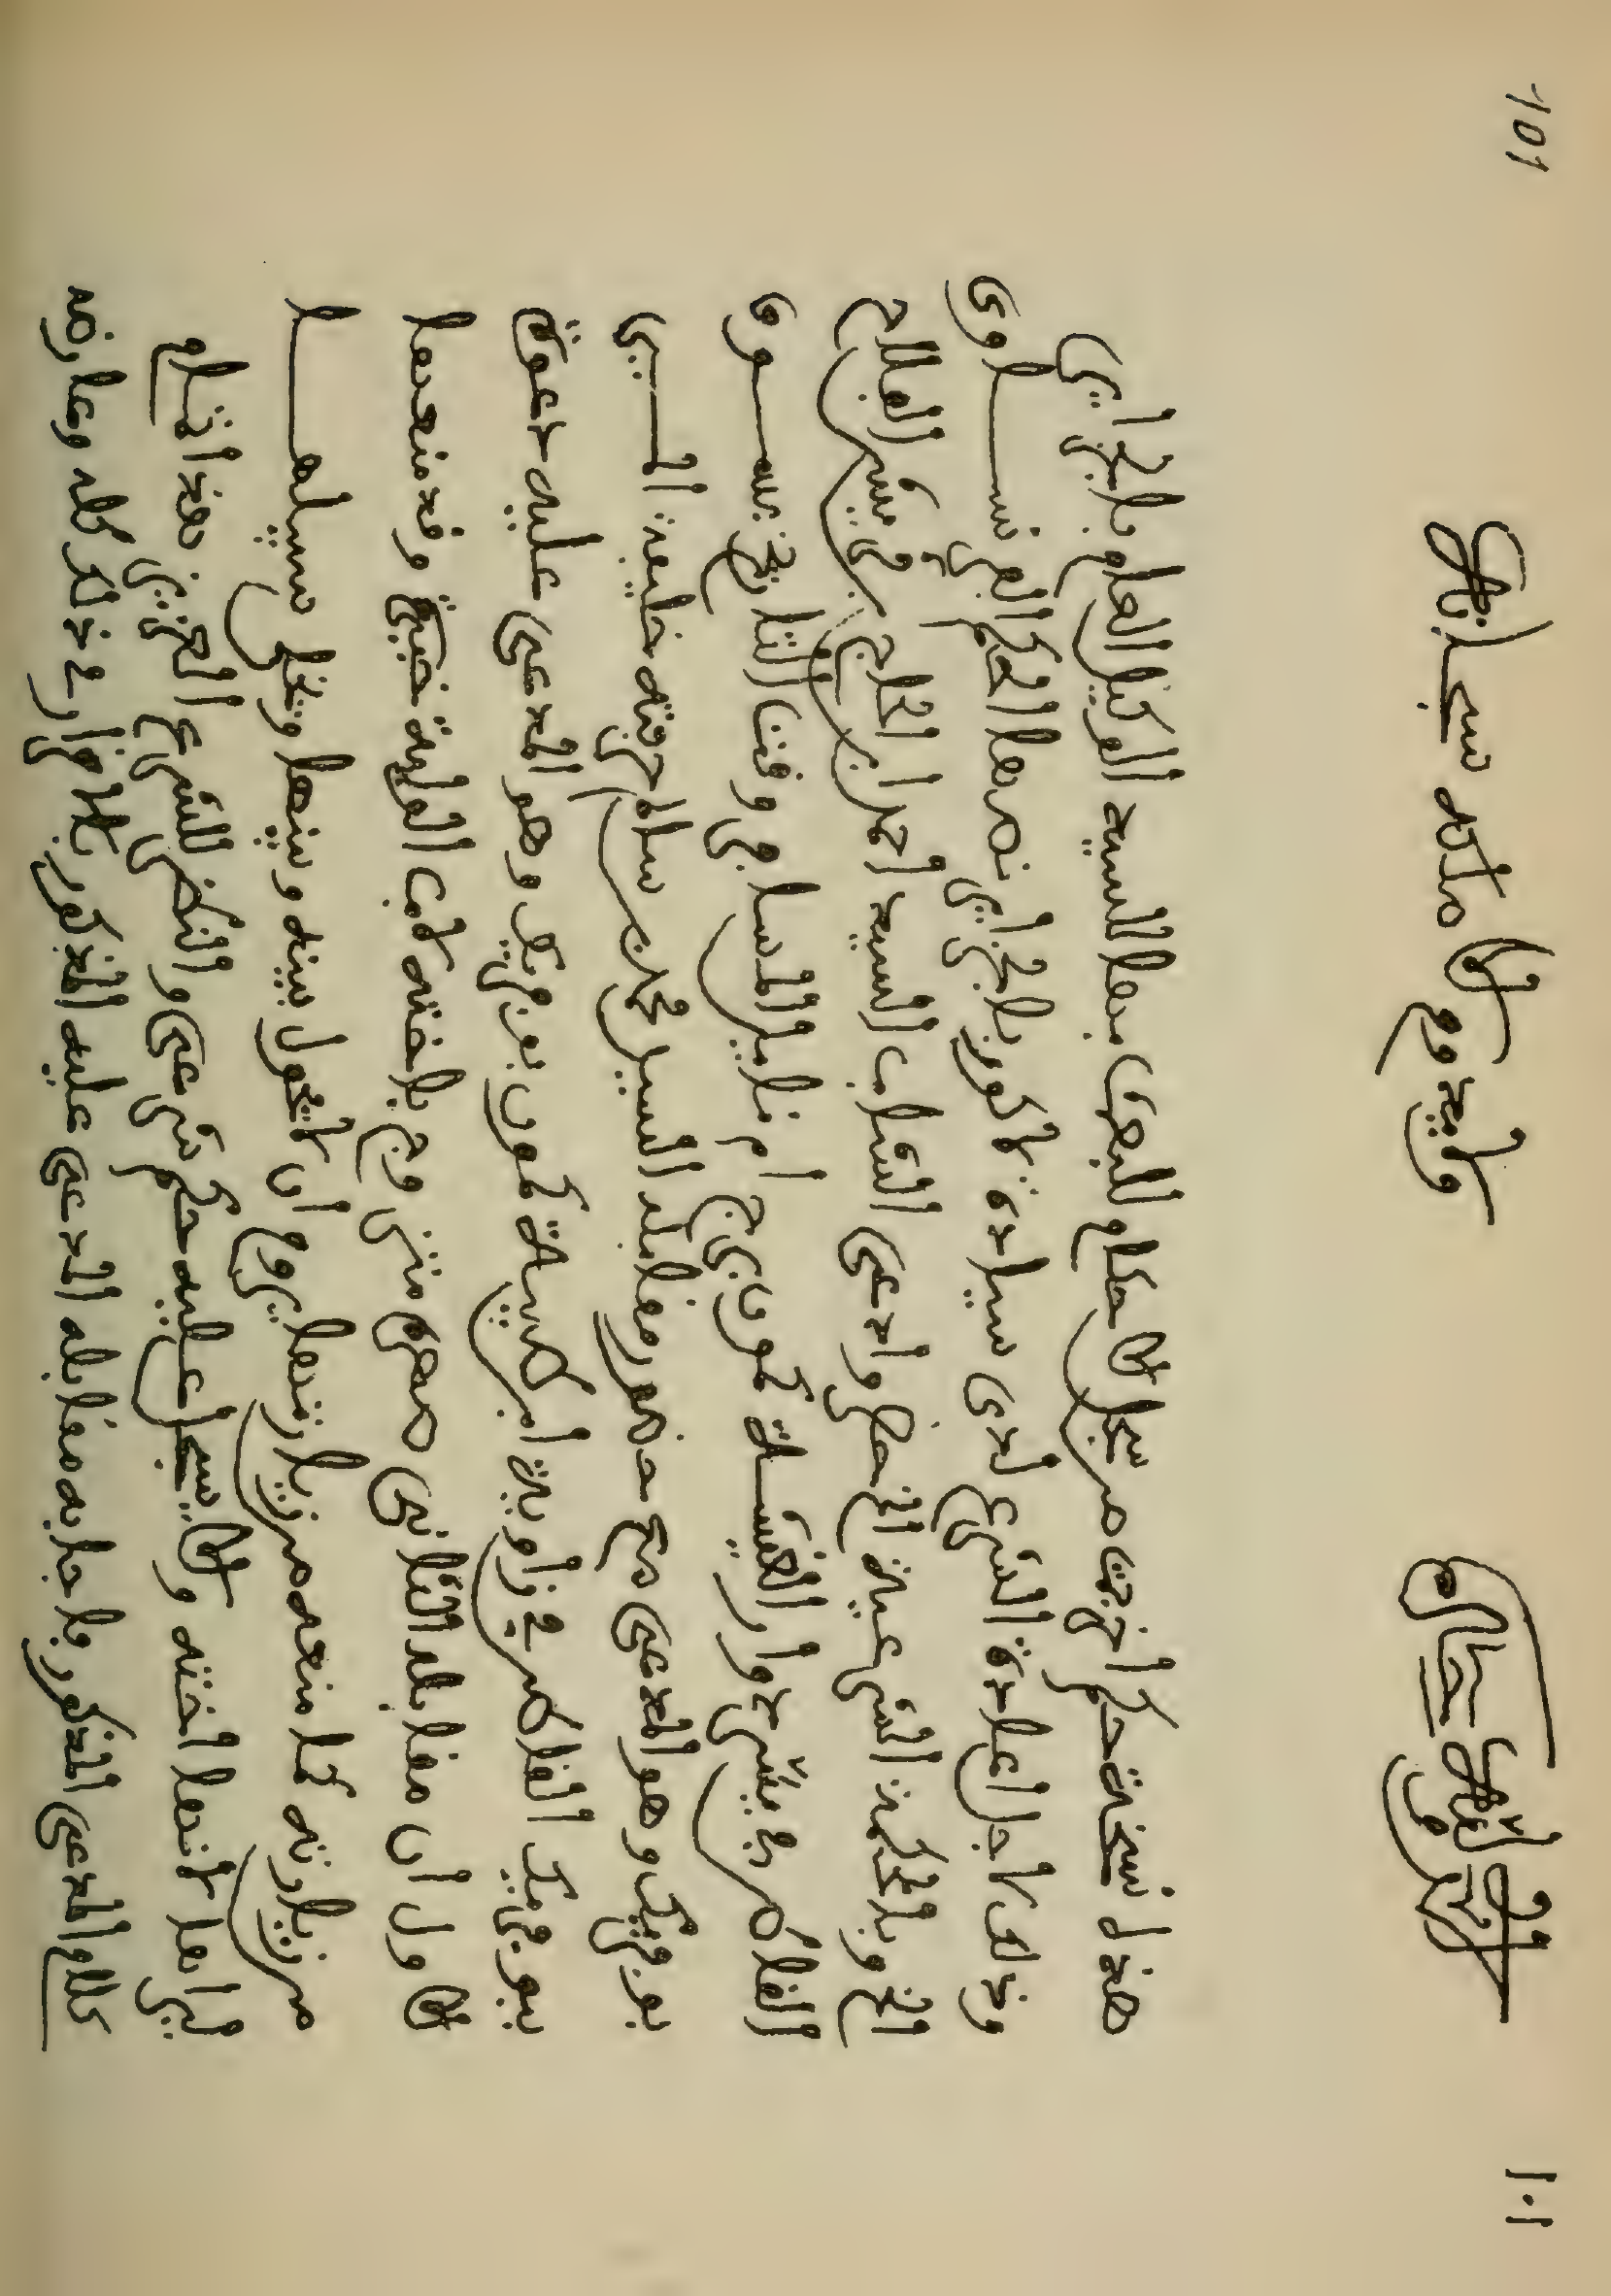 101
١٠١
ولا يدوم الا ملكه سبحانه
هذا نسخة حكم اخرجت من سجل الاحكام للبعث بها للسيد الوكيل العام بالجزاير
وذلك لاجل اعادة الشرع لدى سيادة لاكور بالجزاير نصها الحكم الفرنساوى
الخ وبالمحكمة الشرعية الخ حضر وادعى الشاب السيد احمد بن الحاج فى ميشر الفلاح
القاطن بميشر دوار كمون وقتا التاريخ بسوق
بوفريك وهو المدعى مع حضور مقابله السيد محمد بن سالم حرفته خليفة
ببوفريك القاطن في زاوية كمون بوفريك وهو المدعى عليه دعوة
الاول ان مقابله الثانى صهره متزوج باخته لامه الولية وقد منعها
من زيارته كما منعه من زيارتها يروم ان لا يحول بينه وبينها ويخلى سبيلها
ليراها لانها اخته والا يسجل عليه حكم شرعى والنظر للشرع العزيز بعد اتمام
كلام المدعى المذكور فاجابه مقابله المدعى عليه المذكور بالاقرار في ذلك كله وعارضه